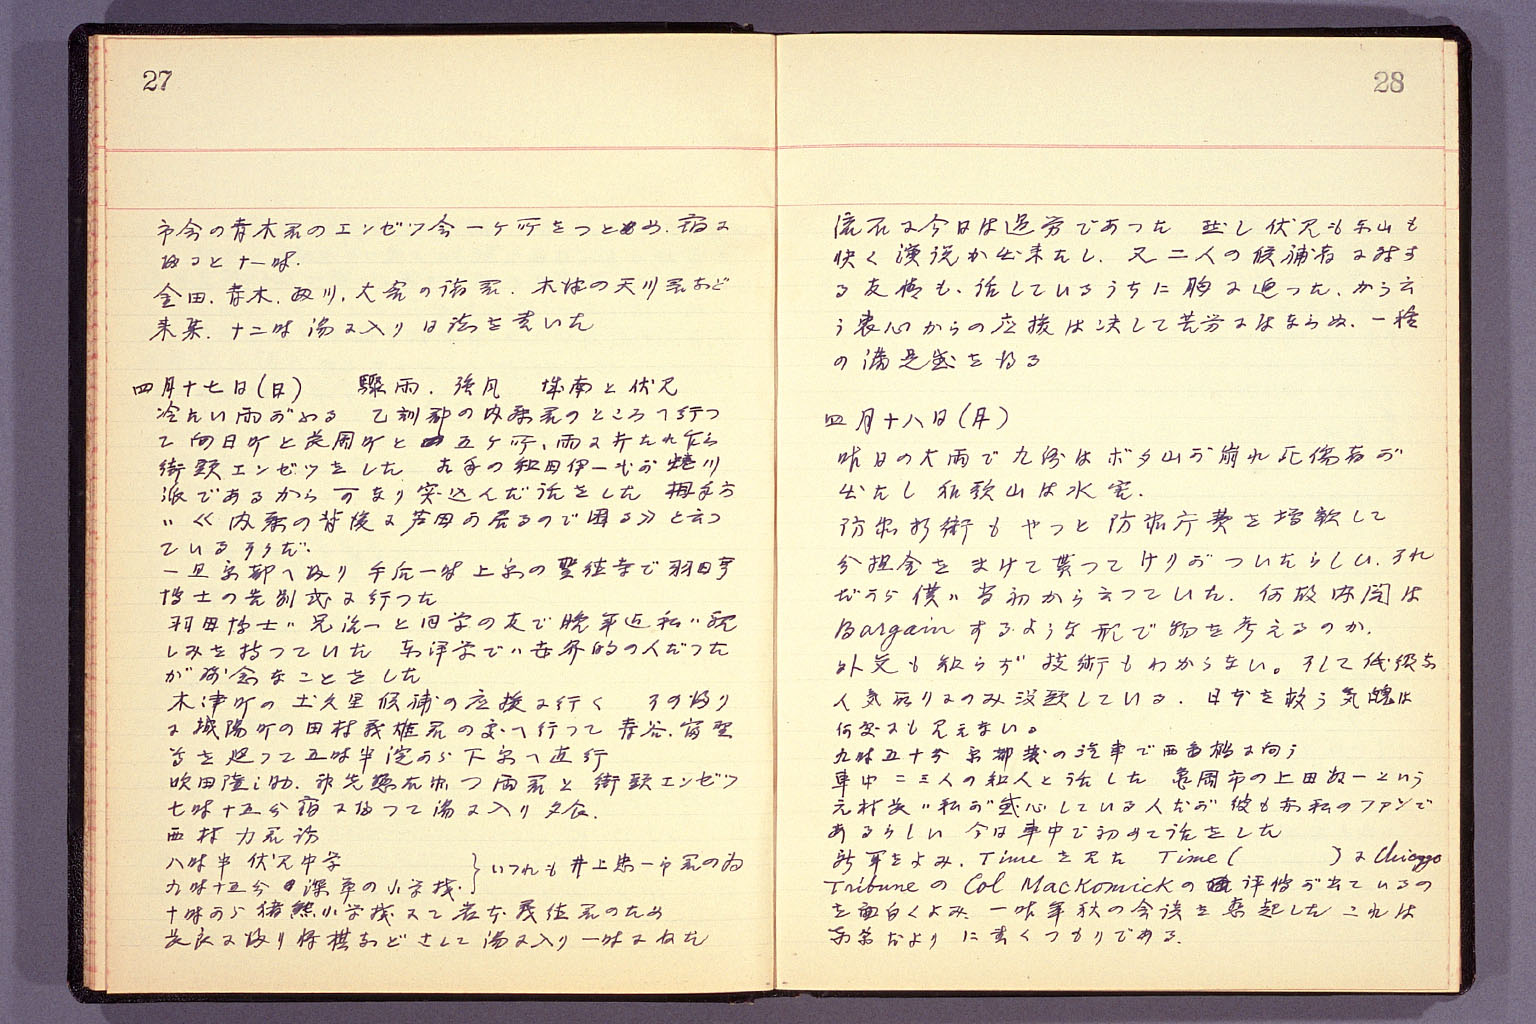 27
市会の青木君のエンゼツ会一ケ所をつとめ、宿に
帰ると十一時.
金田、青木、大家の諸君. 木津の天川君など
来集. 十二時 湯に入り日誌を書いた
四月十七日(日) 驟雨. 強風 城南と伏見
冷たい雨がふる 乙訓郡の君のところへ行つ
て向日町と長岡町と五ケ所、雨に打たれ乍ら
街頭エンゼツをした 相手の和田伊一氏が蜷川
派であるから可なり突込んだ話をした 相手方
は≪の背後に芦田が居るので困る≫と云つ
ているそうだ.
一旦京都へ帰り 午后一時上京の聖徒寺で羽田亨
博士の告別式に行つた
羽田博士は兄と同学の友で晩年迄私は親
しみを持つていた 東洋学では世界的の人だつた
が残念なことをした
木津町の候補の応援に行く その帰り
に城陽町の田村義雄君の家へ行つて青谷、富野
等を廻つて五時半淀から下京へ直行
吹田つ両君と 街頭エンゼツ
七時十五分宿に帰つて湯に入り夕食.
西村力君訪
八時半 伏見中学
九時十五分 深草の小学校. } いづれも井上忠一市君の為
十時から猪熊小学校にて君のため
に帰り将棋などさして湯に入り一時にねた
28
流石に今日は過労であつた 然し伏見も東山も
快く演説が出来たし、又二人の候補者に対す
る友情も、話しているうちに胸に迫つた、かう云
う衷心からの応援は決して苦労にはならぬ、一種
の満足感を得る
四月十八日(月)
昨日の大雨で九州はボタ山が崩れ死傷者が
出たし和歌山は水害.
防衛折衝もやつと防衛庁費を増額して
分担金をまけて貰つてけりがついたらしい、それ
だから僕は当初から云つていた、何故内閣は
Bargainするような形で物を考えるのか.
外交も知らず技術もわからない。そして低級な
人気取りにのみ没頭している. 日本を救う気魄は
何処にも見えない。
九時五十分京都発の汽車で西舞鶴に向う
車中二三人の知人と話した 亀岡市の上田という
元村長は私が感心している人だが彼も亦私のファンで
あるらしい 今日車中で初めて話をした
新聞をよみ、Timeを見た Time( )にChicago
TribuneのCol MacKomickの評価が出ているの
を面白くよみ 一昨年秋の会談を想起した これは
だよりに書くつもりである.